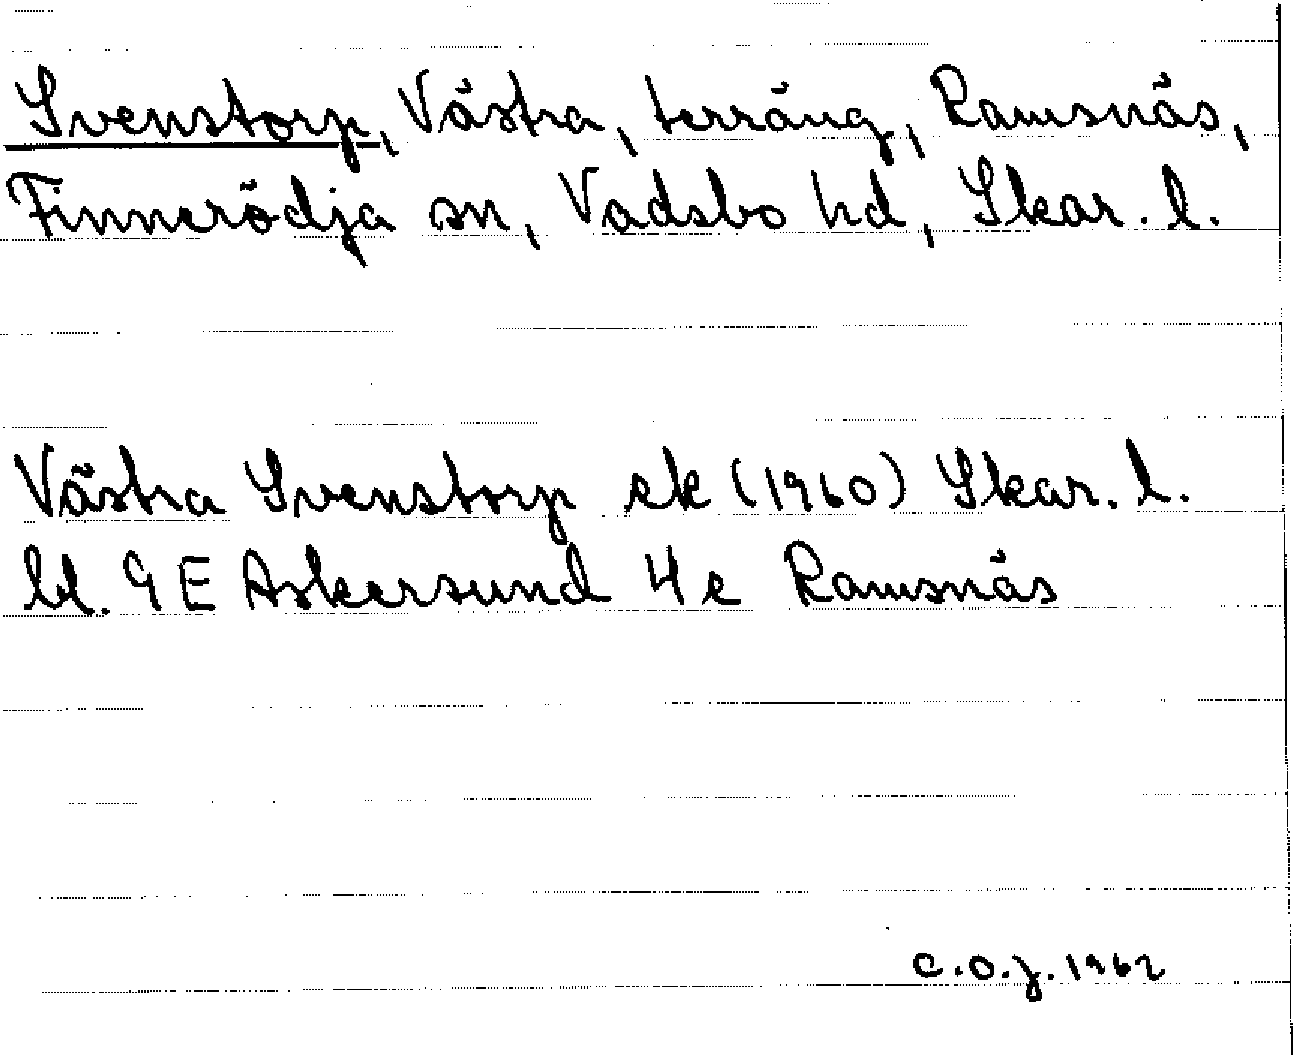 Svenstorp, Västra, terräng, Ramsnäs,
Finnerödja sn, Vadsbo hd, Skar. l.
Västra Svenstorp ek (1960) Skar. l.
bl. 9 E Askersund 4 e Ramsnäs
C.O.J. 1962